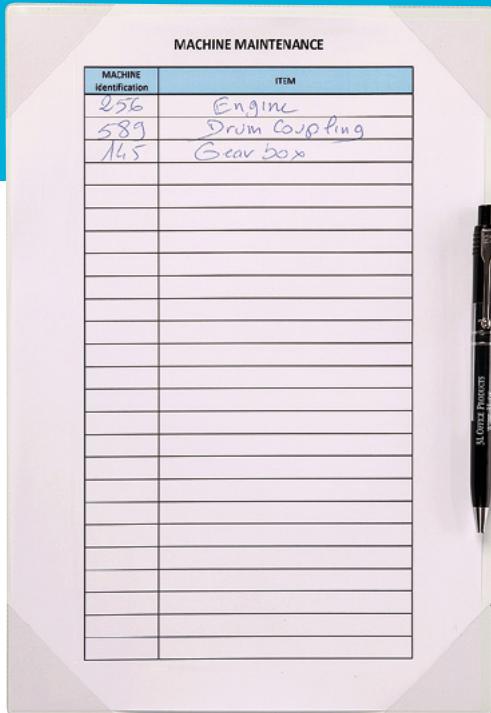 MACHINE MAINTENANCE
MACHINE identification ITEM
256 Engine
589 Drum Coupling
145 Gear box
3L OFFICE PRODUCTS